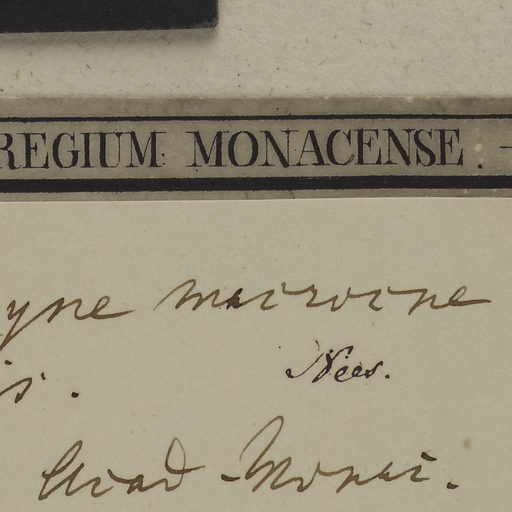 REGIUM MONACENSE. -
yne macrocne
is.
Nees.
Acad Monac.